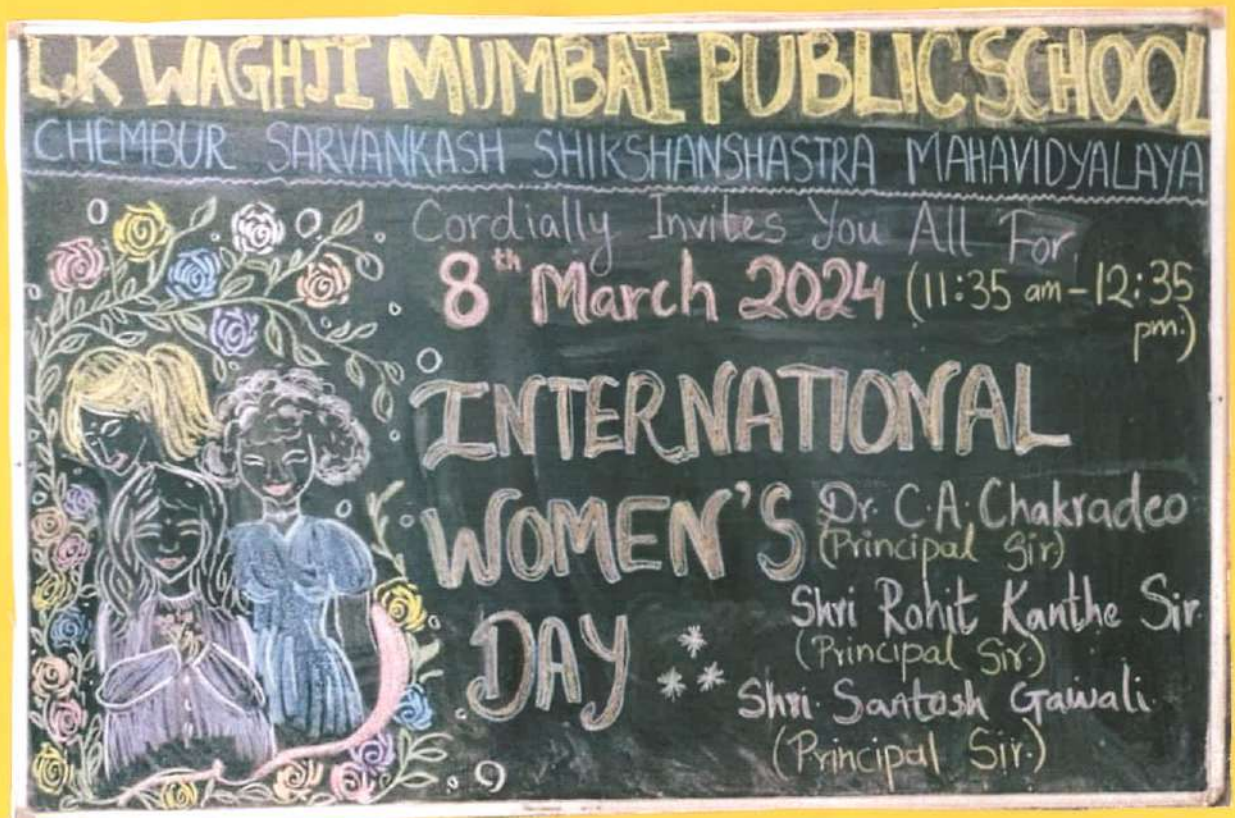 L.K WAGHJI MUMBAI PUBLIC SCHOOL
CHEMBUR SARVANKASH SHIKSHANSHASTRA MAHAVIDYALAYA
Cordially Invites You All For
8th March 2024 (11:35 am - 12:35
pm.)
INTERNATIONAL
WOMEN'S
DAY
Dr. C.A. Chakradeo
(Principal Sir)
Shri Rohit Kanthe Sir
(Principal Sir.)
Shri. Santosh Gawali
(Principal Sir.)